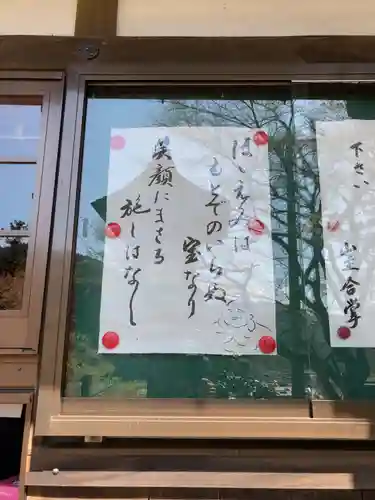 下さい
山主合掌
ほゝえみは
もとでのいらぬ
宝なり
笑顔にまさる
施しはなし